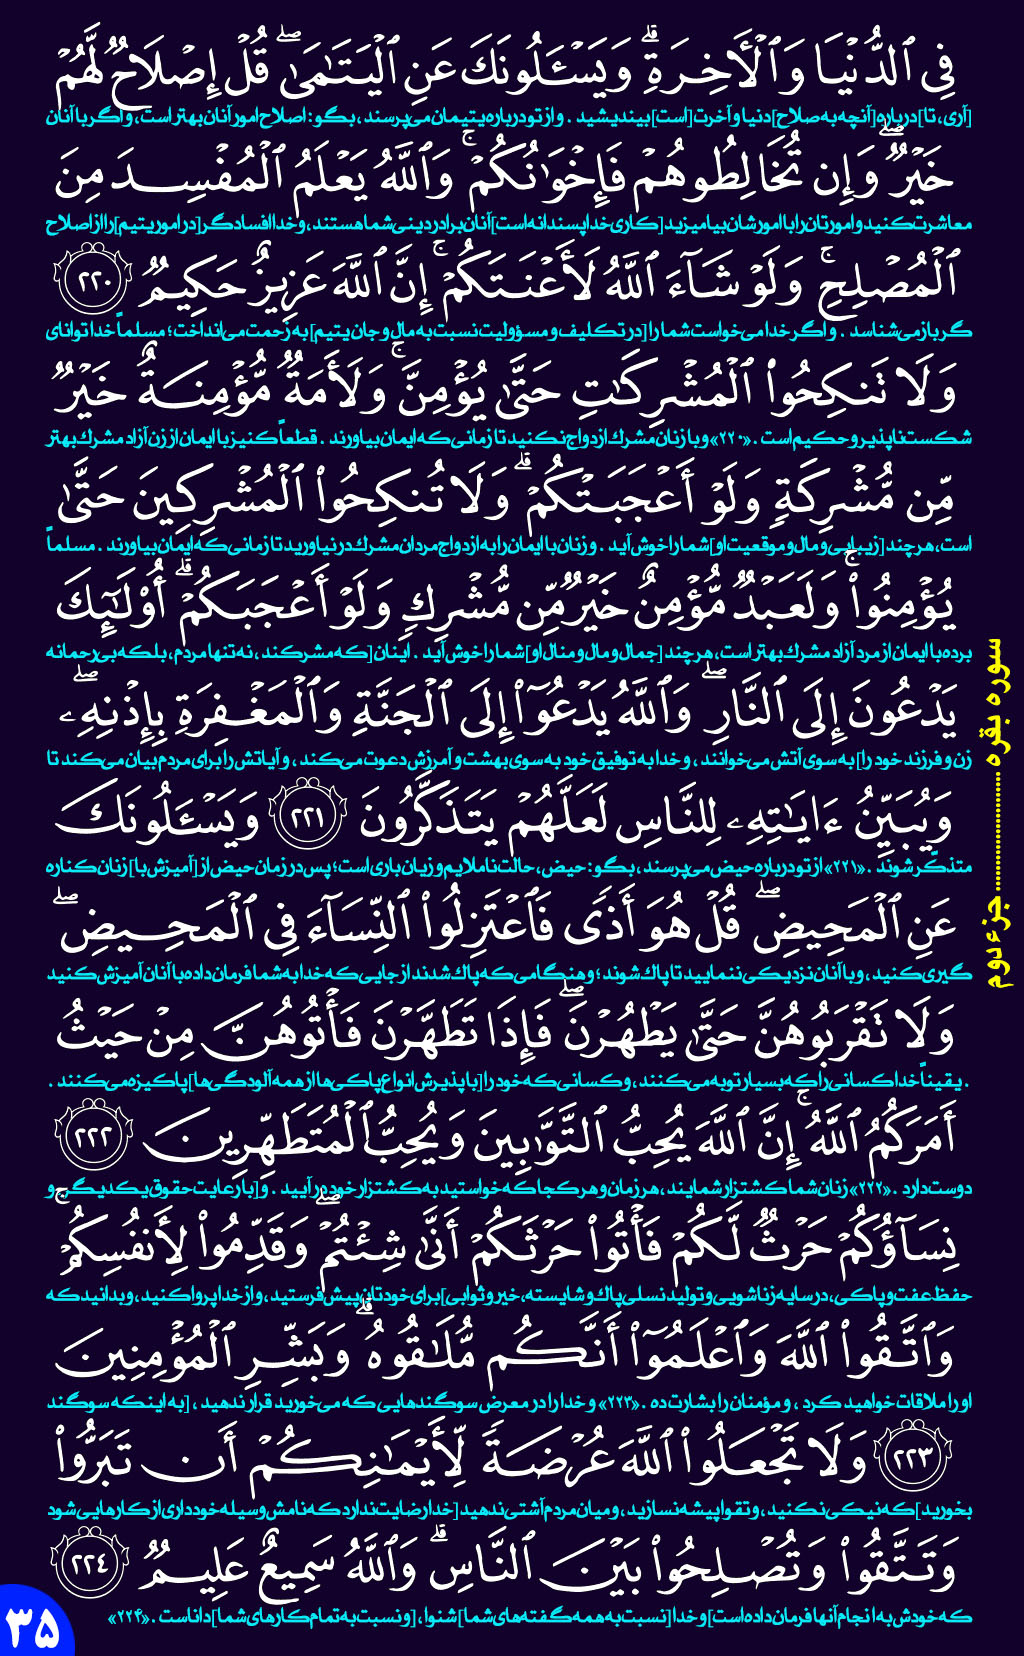 فِي ٱلدُّنْيَا وَٱلْأَخِرَةِ ۗ وَيَسْـَٔلُونَكَ عَنِ ٱلْيَتَـٰمَىٰ ۖ قُلْ إِصْلَاحٌ لَّهُمْ
[آری، تا] درباره [آنچه به صلاح] دنیا و آخرت [است] بیندیشید . و از تو درباره یتیمان می‌پرسند ، بگو : اصلاح امور آنان بهتر است، و اگر با آنان
خَيْرٌ ۖ وَإِن تُخَالِطُوهُمْ فَإِخْوَٰنُكُمْ ۚ وَٱللَّهُ يَعْلَمُ ٱلْمُفْسِدَ مِنَ
معاشرت کنید و امورتان را با امورشان بیامیزید [کاری خداپسندانه است] آنان برادر دینی شما هستند ، و خدا افسادگر [در امور یتیم] را از اصلاح
ٱلْمُصْلِحِ ۚ وَلَوْ شَآءَ ٱللَّهُ لَأَعْنَتَكُمْ ۚ إِنَّ ٱللَّهَ عَزِيزٌ حَكِيمٌ ٢٢٠
گر بازمی‌شناسد . و اگر خدا می‌خواست شما را [در تکلیف و مسؤولیت نسبت به مال و جان یتیم] به زحمت می‌انداخت ؛ مسلماً خدا توانای
وَلَا تَنكِحُوا۟ ٱلْمُشْرِكَـٰتِ حَتَّىٰ يُؤْمِنَّ ۚ وَلَأَمَةٌ مُّؤْمِنَةٌ خَيْرٌ
شکست‌ناپذیر و حکیم است . «۲۲۰» و با زنان مشرک ازدواج نکنید تا زمانی که ایمان بیاورند . قطعاً کنیز با ایمان از زن آزاد مشرک بهتر
مِّن مُّشْرِكَةٍ وَلَوْ أَعْجَبَتْكُمْ ۗ وَلَا تُنكِحُوا۟ ٱلْمُشْرِكِينَ حَتَّىٰ
است، هر چند [زیبایی و مال و موقعیت او] شما را خوش آید . و زنان با ایمان را به ازدواج مردان مشرک درنیاورید تا زمانی که ایمان بیاورند . مسلماً
يُؤْمِنُوا۟ ۚ وَلَعَبْدٌ مُّؤْمِنٌ خَيْرٌ مِّن مُّشْرِكٍ وَلَوْ أَعْجَبَكُمْ ۗ أُو۟لَـٰٓئِكَ
برده با ایمان از مرد آزاد مشرک بهتر است، هر چند [جمال و مال و منال او] شما را خوش آید . اینان [که مشرکند ، نه تنها مردم ، بلکه بی‌رحمانه
يَدْعُونَ إِلَى ٱلنَّارِ ۖ وَٱللَّهُ يَدْعُوٓا۟ إِلَى ٱلْجَنَّةِ وَٱلْمَغْفِرَةِ بِإِذْنِهِۦ ۖ
زن و فرزند خود را] به سوی آتش می‌خوانند ، و خدا به توفیق خود به سوی بهشت و آمرزش دعوت می‌کند ، و آیاتش را برای مردم بیان می‌کند تا
وَيُبَيِّنُ ءَايَـٰتِهِۦ لِلنَّاسِ لَعَلَّهُمْ يَتَذَكَّرُونَ ٢٢١ وَيَسْـَٔلُونَكَ
متذکّر شوند . «۲۲۱» از تو درباره حیض می‌پرسند ، بگو : حیض ، حالت ناملایم و زیان باری است ؛ پس در زمان حیض از [آمیزش با] زنان کناره
عَنِ ٱلْمَحِيضِ ۖ قُلْ هُوَ أَذًى فَٱعْتَزِلُوا۟ ٱلنِّسَآءَ فِي ٱلْمَحِيضِ ۖ
گیری کنید ، و با آنان نزدیکی ننمایید تا پاک شوند ؛ و هنگامی که پاک شدند از جایی که خدا به شما فرمان داده با آنان آمیزش کنید
وَلَا تَقْرَبُوهُنَّ حَتَّىٰ يَطْهُرْنَ ۖ فَإِذَا تَطَهَّرْنَ فَأْتُوهُنَّ مِنْ حَيْثُ
. یقیناً خدا کسانی را که بسیار توبه می‌کنند ، و کسانی که خود را [با پذیرش انواع پاکی‌ها از همه آلودگی‌ها] پاکیزه می‌کنند .
أَمَرَكُمُ ٱللَّهُ ۚ إِنَّ ٱللَّهَ يُحِبُّ ٱلتَّوَّٰبِينَ وَيُحِبُّ ٱلْمُتَطَهِّرِينَ ٢٢٢
دوست دارد . «۲۲۲» زنان شما کشتزار شمایند ، هر زمان و هر کجا که خواستید به کشتزار خود درآیید . و [با رعایت حقوق یکدیگر ، و
نِسَآؤُكُمْ حَرْثٌ لَّكُمْ فَأْتُوا۟ حَرْثَكُمْ أَنَّىٰ شِئْتُمْ ۖ وَقَدِّمُوا۟ لِأَنفُسِكُمْ ۚ
حفظ عفت و پاکی، در سایه زناشویی و تولید نسلی پاک و شایسته، خیر و ثوابی] برای خودتان پیش فرستید ، و از خدا پروا کنید ، و بدانید که
وَٱتَّقُوا۟ ٱللَّهَ وَٱعْلَمُوٓا۟ أَنَّكُم مُّلَـٰقُوهُ ۗ وَبَشِّرِ ٱلْمُؤْمِنِينَ
او را ملاقات خواهید کرد ، و مؤمنان را بشارت ده . «۲۲۳» و خدا را در معرض سوگندهایی که می‌خورید قرار ندهید ، [به اینکه سوگند
٢٢٣ وَلَا تَجْعَلُوا۟ ٱللَّهَ عُرْضَةً لِّأَيْمَـٰنِكُمْ أَن تَبَرُّوا۟
بخورید] که نیکی نکنید ، و تقوا پیشه نسازید ، و میان مردم آشتی ندهید [خدا رضایت ندارد که نامش وسیله خودداری از کارهایی شود
وَتَتَّقُوا۟ وَتُصْلِحُوا۟ بَيْنَ ٱلنَّاسِ ۗ وَٱللَّهُ سَمِيعٌ عَلِيمٌ ٢٢٤
که خودش به انجام آنها فرمان داده است] و خدا [نسبت به همه گفته‌های شما] شنوا ، [و نسبت به تمام کارهای شما] دانا است . «۲۲۴»
سوره بقره .......................... جزء دوم
۳۵